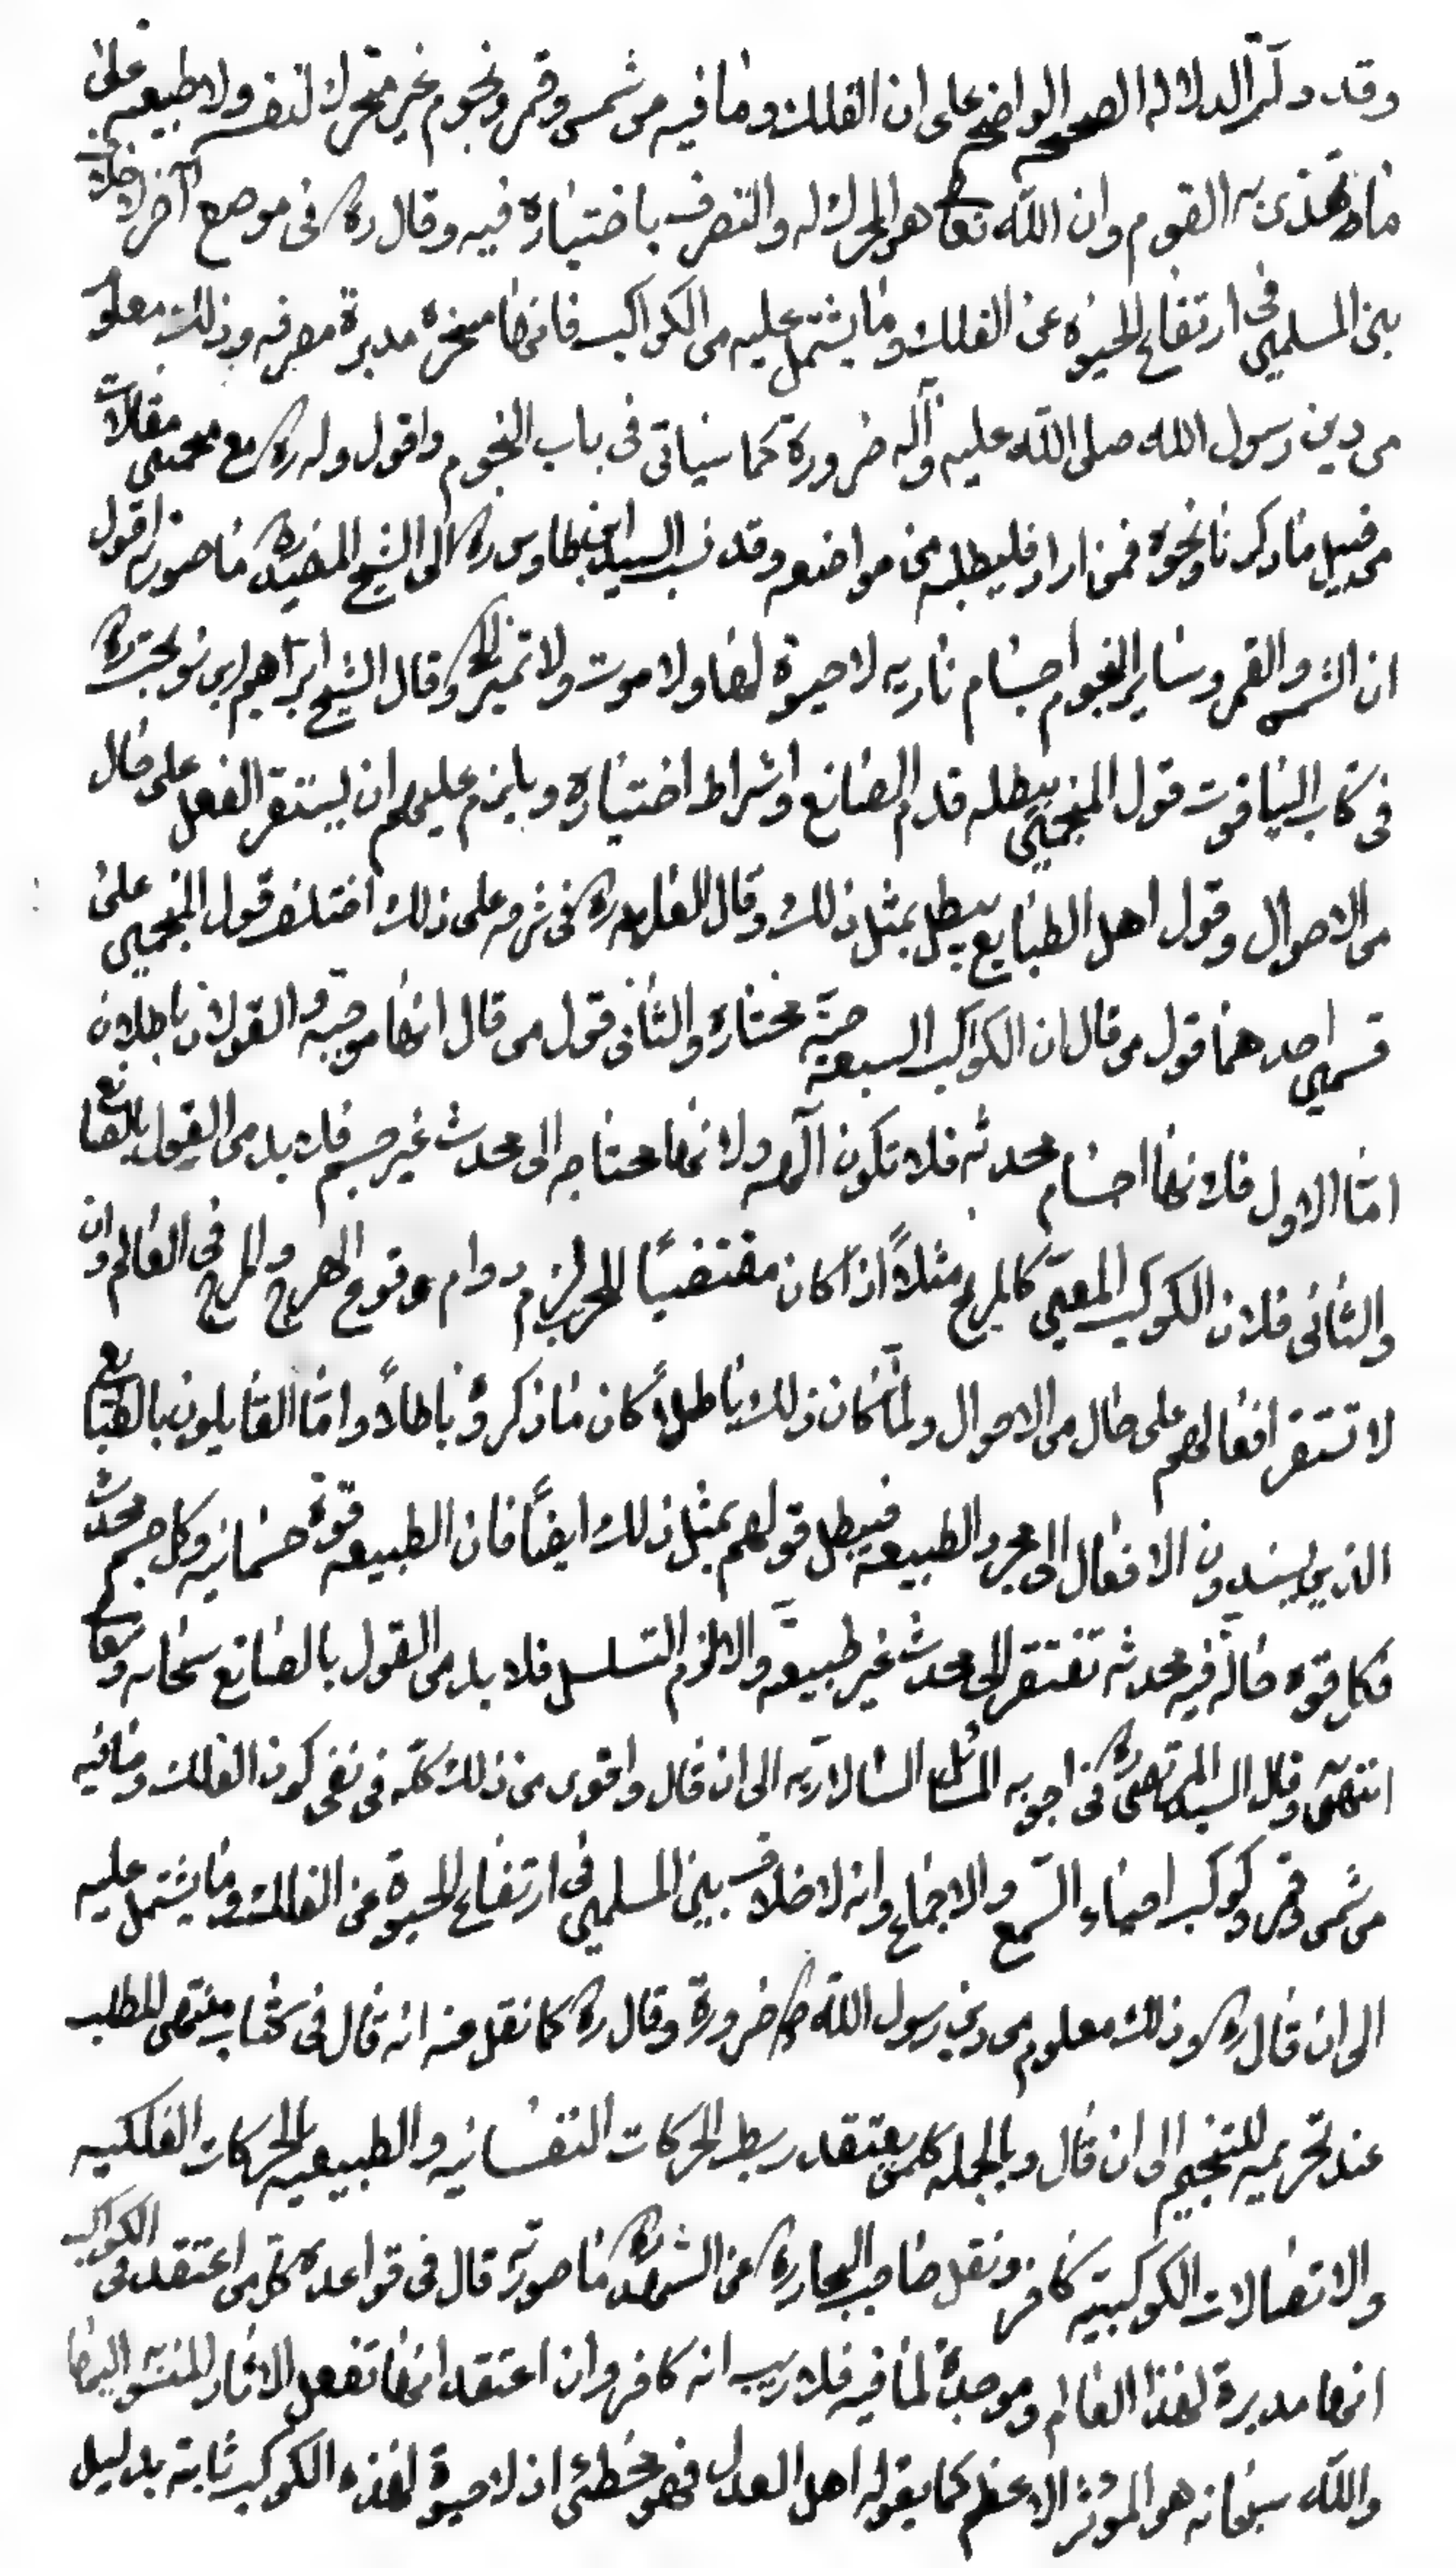 وقد دلت الدلالة الصحيحة الواضحة على ان الفلك وما فيه من شمس وقمر ونجوم غير متحرك لنفسه ولا طبيعة على
ما يهذى به القوم وان الله تعا هو المحرك له والتصرف باختياره فيه وقال ره فى موضع آخر لا خلاف
بين المسلمين فى ارتفاع الحيوة عن الفلك وما يشتمل عليه من الكواكب فانها مسخرة مدبرة مصرفه وذلك معلوم
من دين رسول الله صلى الله عليه وآله ضرورة كما سياتى فى باب النجوم واقول وله ره مع منجمين مقالات
من قبيل ما ذكرنا ونحوه فمن اراد فليطلبه من مواضعه وقد نسب السيد ابن طاوس ره الى الشيخ المفيد ره ما صورته اقول
ان الشمس والقمر وساير النجوم اجسام ناريه لا حيوة لها ولا موت ولا تميز الخ وقال الشيخ ابراهيم ابن نوبخت ره
فى كتاب الياقوت قول المنجمين يبطله قدم الصانع واشراط اختياره ويلزم عليهم ان يستقر الفعل على حال
من الاحوال وقول اهل الطبايع يبطل بمثل ذلك وقال العلامه ره فى شرحه على ذلك اختلف قول المنجمين على
قسمين احدهما قول من قال ان الكواكب السبعة حيّة مختاره والثانى قول من قال انها موجبه والقولان باطلان
امّا الاول فلانها اجسام محدثه فلا تكون آلهه ولانها محتاجه الى محدث غير جسم فلا بد من القول بالصانع
والثانى فلان الكوكب المعين كالمريخ مثلاً اذا كان مقتضياً للحرب لزم دوام وقوع الهرج والمرج فى العالم وان
لا تستقر افعالهم على حال من الاحوال ولمّا كان ذلك باطلاً كان ما ذكروه باطلاً وامّا القايلون بالطبايع
الذين يسندون الافعال الى مجرد الطبيعه فيبطل قولهم بمثل ذلك ايضاً فان الطبيعه قوة جسمانيه وكل جسم محدث
فكل قوه حالّه فيه محدثه تفتقر الى محدث غير طبيعة والا لزم التسلسل فلا بد من القول بالصانع سبحانه وتعا
انتهى وقال السيد المرتضى ره فى اجوبه المسائل السلاريه الى ان قال واقوى من ذلك كله فى نفى كون الفلك وما فيه
من شمس وقمر وكوكب احياء السّمع والاجماع وانه لا خلاف بين المسلمين فى ارتفاع الحيوة عن الفلك وما يشتمل عليه
الى ان قال ره وذلك معلوم من دين رسول الله ص ضرورة وقال ره كما نقل عنه انه قال فى كتاب منتهى المطلب
عند تحريميه للتنجيم الى ان قال وبالجمله كلمن يعتقد ربط الحركات النفسانيه والطبيعيه بالحركات الفلكيه
والاتصالات الكوكبيّه كافر ونقل صاحب البحار ره عن الشهيد ره ما صورته قال فى قواعده كلمن اعتقد فى الكواكب
انها مدبرة لهذا العالم وموجدة لما فيه فلا ريب انه كافر وان اعتقد انها تفعل الاثار المنسوبة اليها
والله سبحانه هو المؤثر الاعظم كما يقوله اهل العدل فهو مخطئ اذ لا حيوة لهذه الكوكب ثابتة بدليل